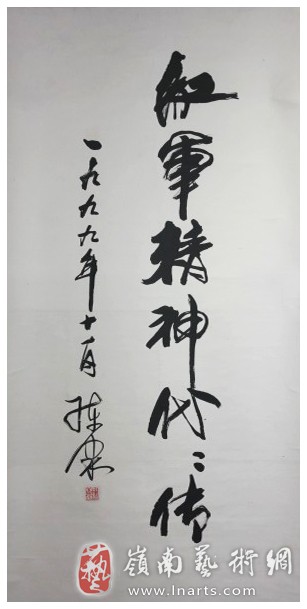 红军精神代〻传
一九九九年十月
嶺南藝術網
www.lnarts.com